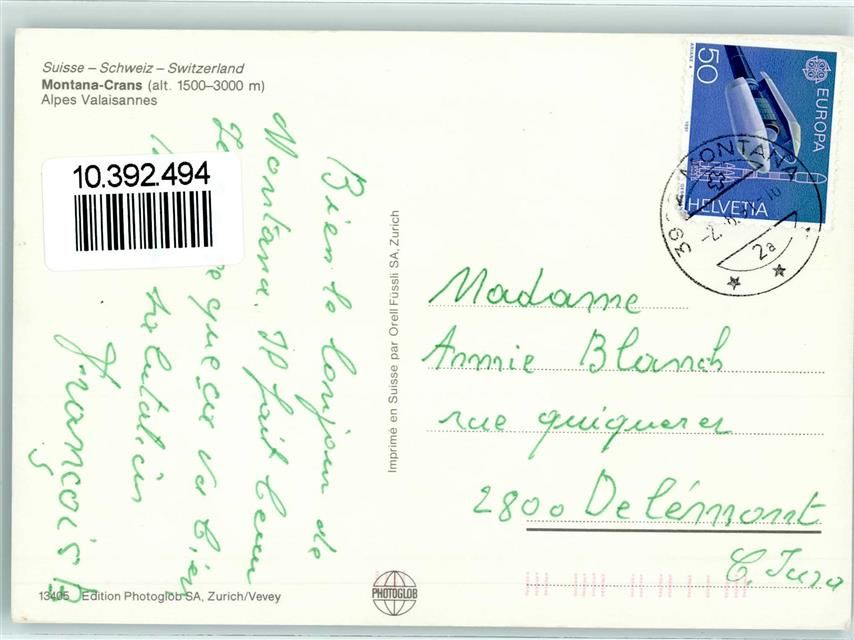 Suisse – Schweiz – Switzerland
Montana-Crans (alt. 1500–3000 m)
Alpes Valaisannes
10.392.494
Bien le bonjour de
Montana. Il fait beau
que ça va bien
salutations
François B
13405 Edition Photoglob SA, Zurich/Vevey
Imprimé en Suisse par Orell Füssli SA, Zurich
PHOTOGLOB
50
EUROPA
HELVETIA
ARIANE 4
1991
MONTANA
2a
Madame
Annie Blanch
rue quiquerez
2800 Delémont
C. Jura